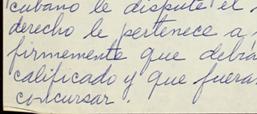 cubano le dispute el
derecho le pertenece a
firmemente que debía
calificado y que fuera
concursar.